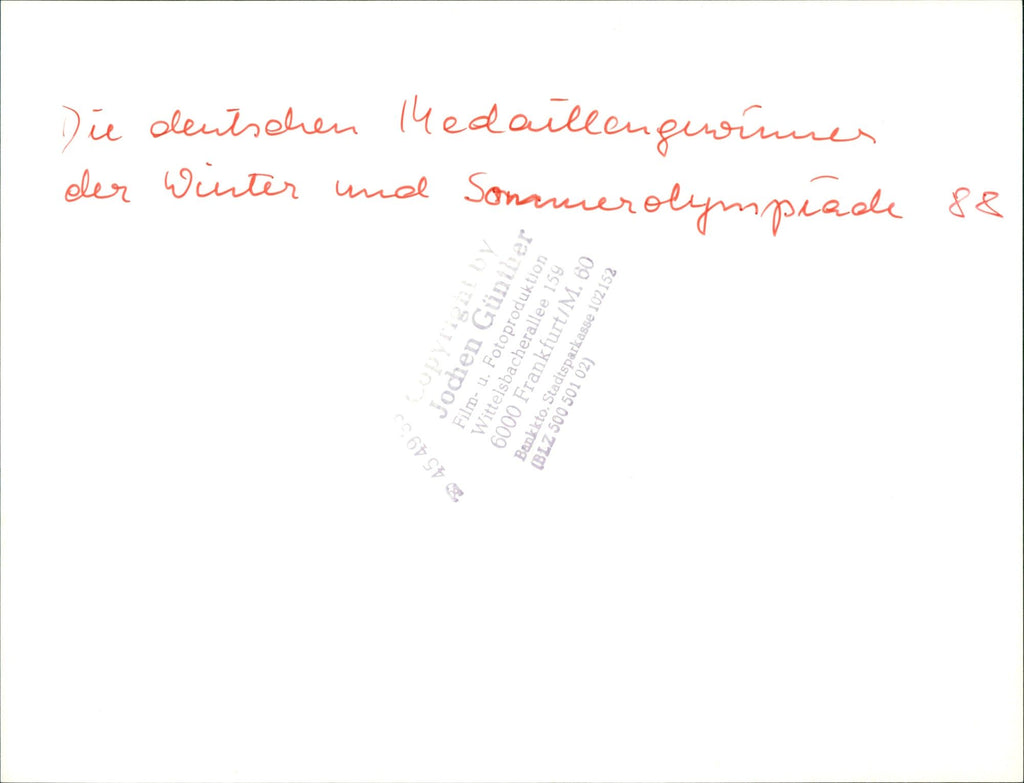 Die deutschen Medaillengewinner
der Winter und Sommerolympiade 88
Copyright by
Jochen Günther
Film- u. Fotoproduktion
Wittelsbacherallee 159
6000 Frankfurt/M. 60
Bankkto. Stadtsparkasse 102152
(BLZ 500 501 02)
45 49